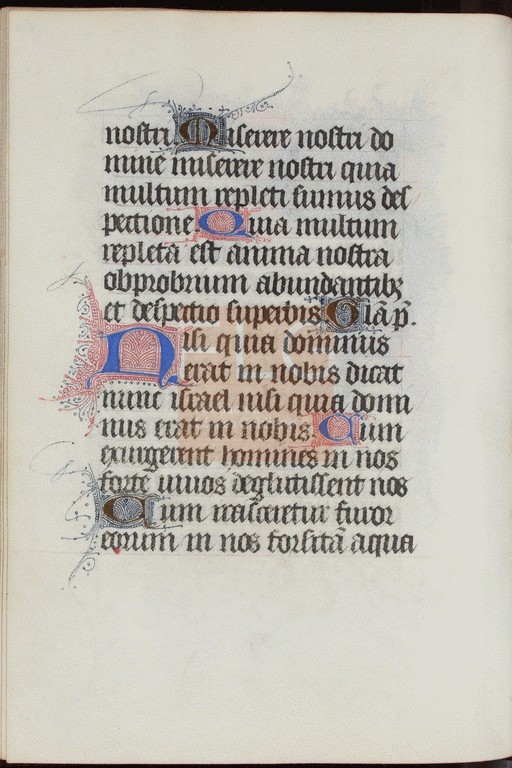 nostri Miserere nostri do
mine miserere nostri quia
multum repleti sumus des
pectione Quia multum
repleta est anima nostra
obprobrium abundantibz
et despectio superbis Glã p̃.
Nisi quia dominus
erat in nobis dicat
nunc israel nisi quia domi
nus erat in nobis Cum
exurgerent homines in nos
forte vivos deglutissent nos
Cum irasceretur furor
eorum in nos forsitã aqua